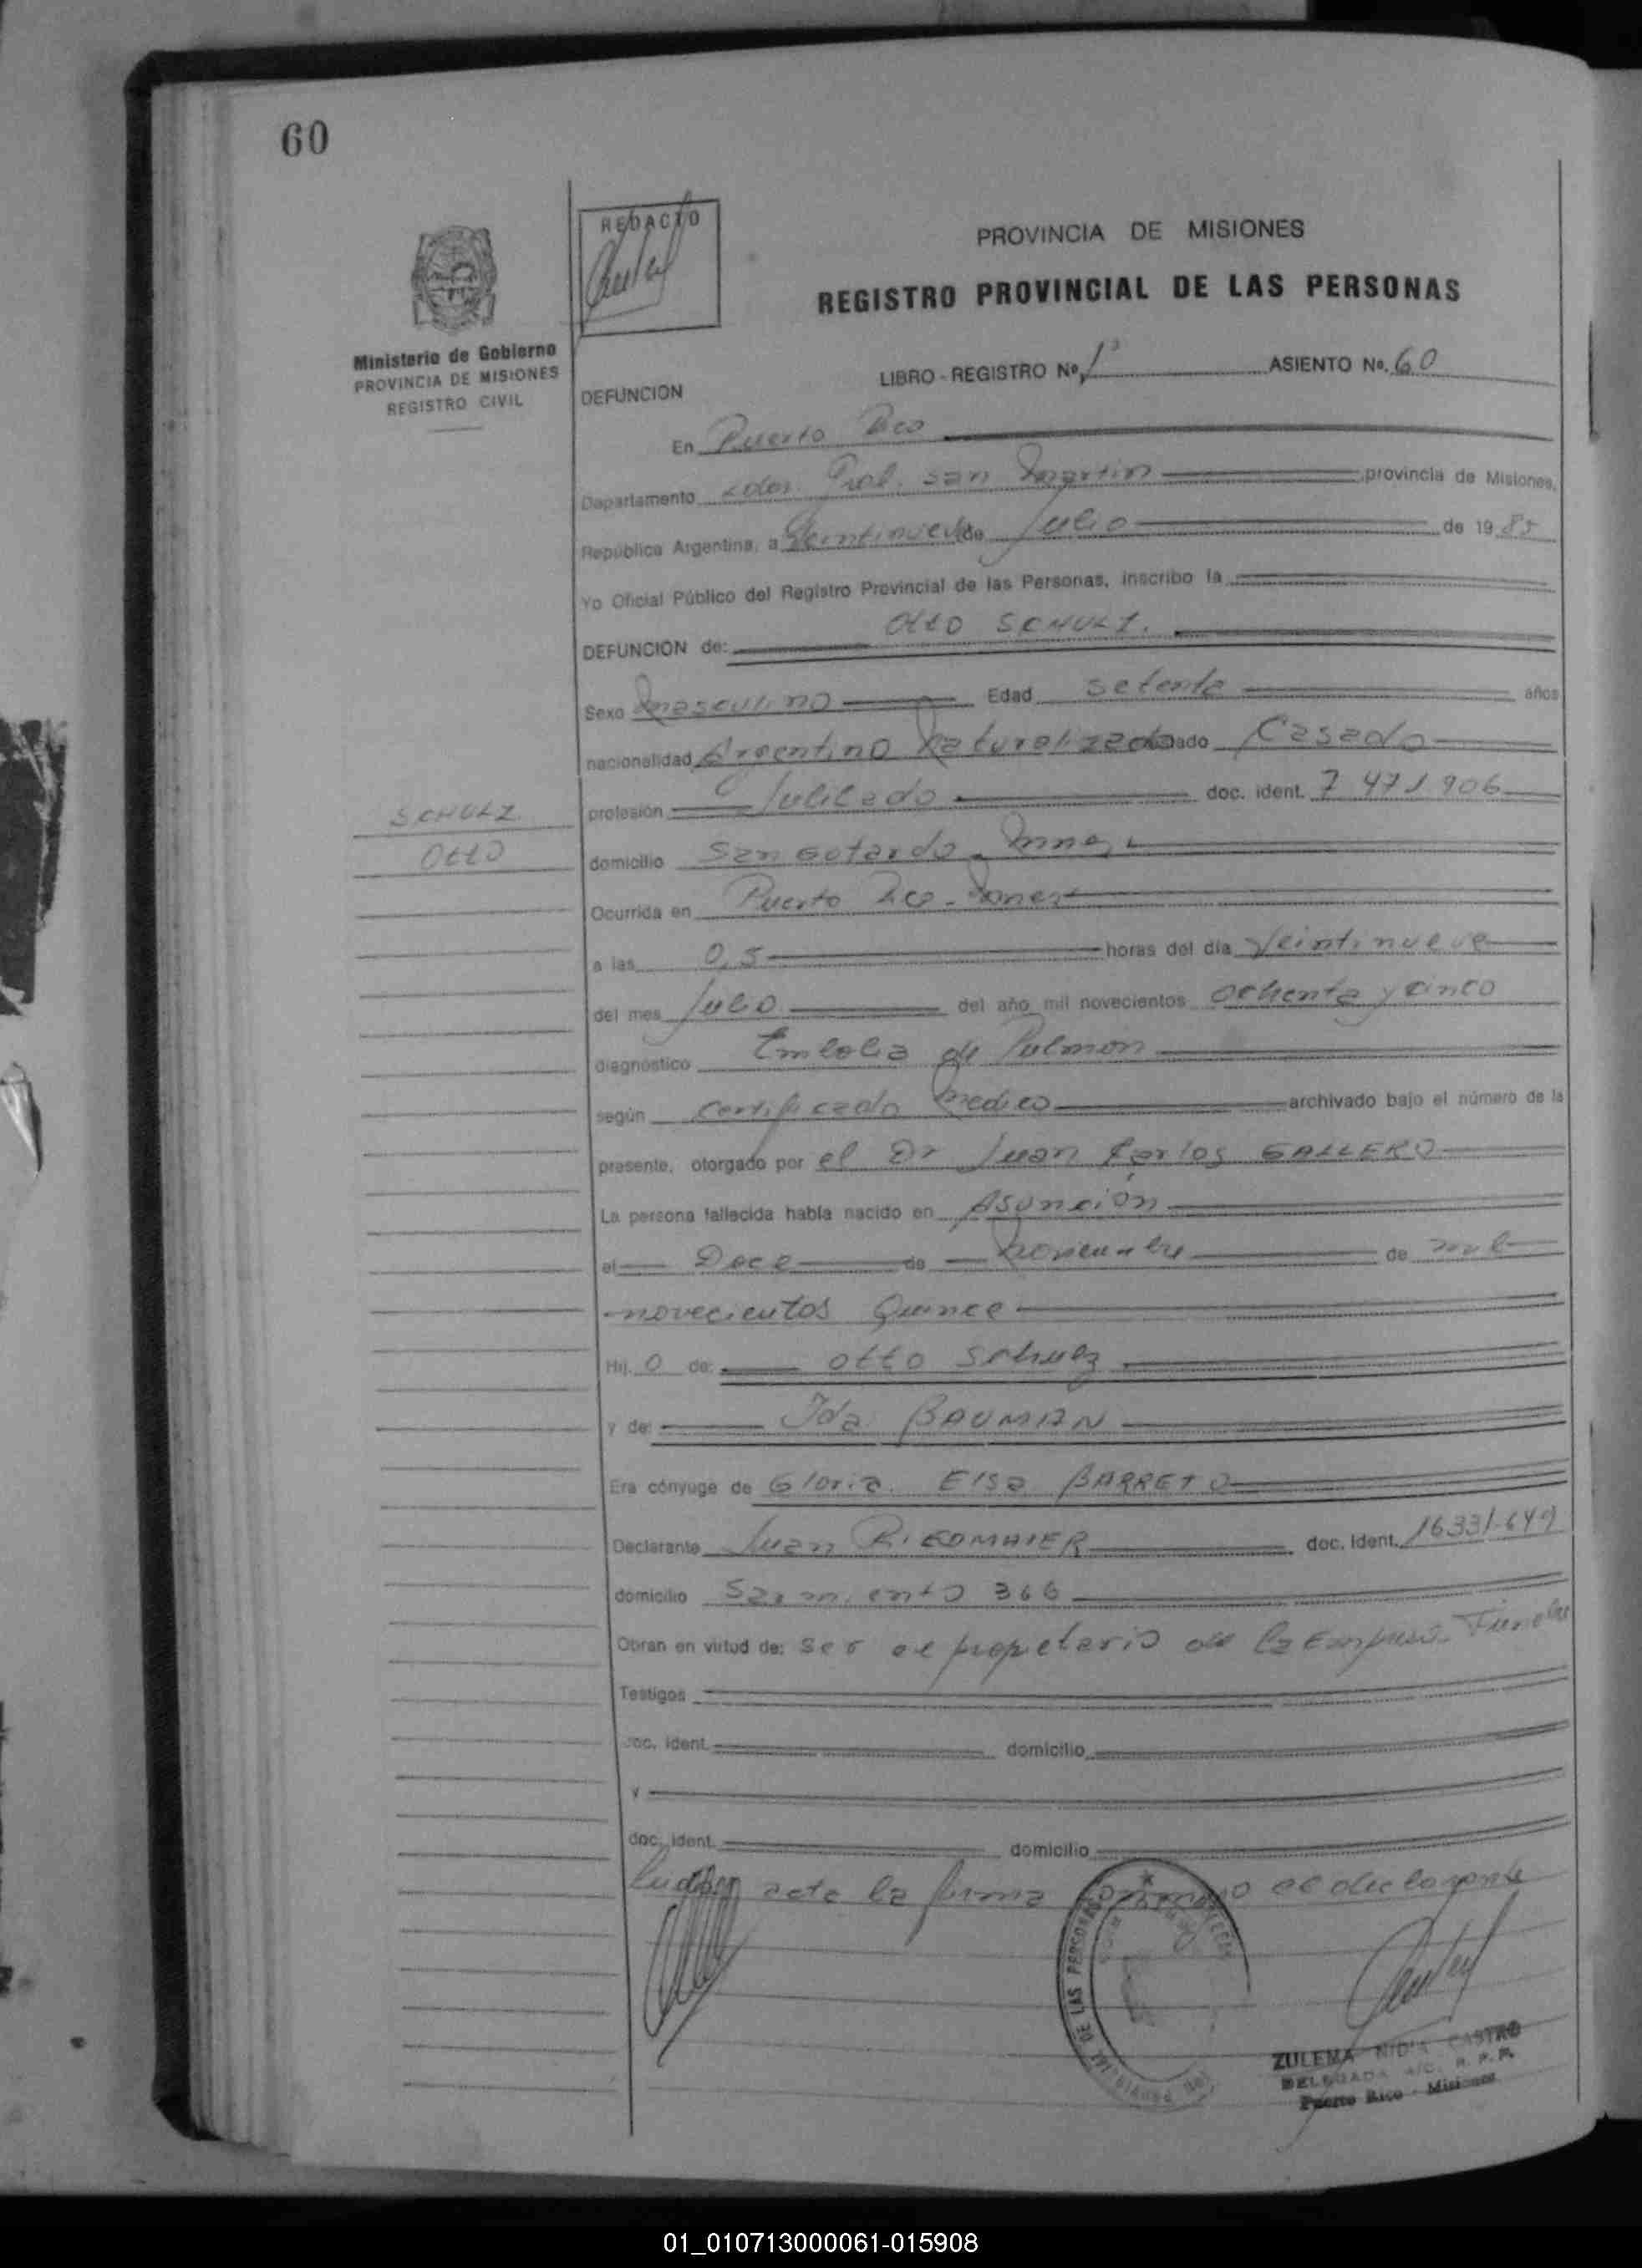 60
REDACTO
PROVINCIA DE MISIONES
REGISTRO PROVINCIAL DE LAS PERSONAS
Ministerio de Gobierno
PROVINCIA DE MISIONES
REGISTRO CIVIL
LIBRO - REGISTRO Nº 1º ASIENTO Nº. 60
DEFUNCION
En Puerto Rico
Departamento Ldor. Gral. San Martin provincia de Misiones,
República Argentina, a Veintinueve de Julio de 1985
Yo Oficial Público del Registro Provincial de las Personas, inscribo la
DEFUNCION de: Otto SCHULZ.
Sexo Masculino Edad setenta años
nacionalidad Argentino Naturalizado Casado
profesión Jubilado doc. ident. 7 471 906
SCHULZ
Otto
domicilio San Gotardo - Mnes.
Ocurrida en Puerto Rico - Mnes
a las 0,5 horas del día Veintinueve
del mes Julio del año mil novecientos ochenta y cinco
diagnóstico Embolia de Pulmon
según certificado Medico archivado bajo el número de la
presente, otorgado por el Dr Juan Carlos GALLERO
La persona fallecida había nacido en Asunción
el Doce de Noviembre de mil
novecientos Quince
Hij. o de: Otto Schulz
y de: Ida BAUMAN
Era cónyuge de Gloria Elsa BARRETO
Declarante Juan RIEDMAIER doc. ident. 16331.649
domicilio Sarmiento 366
Obran en virtud de: Ser el propietario de la Empresa Funebre
Testigos
doc. ident. domicilio
y
doc. ident. domicilio
acta la firma conmigo el declarante
DE LAS PERSONAS
ZULEMA NIDIA CASTRO
DELEGADA A/C. R. P. P.
Puerto Rico - Misiones
01_010713000061-015908